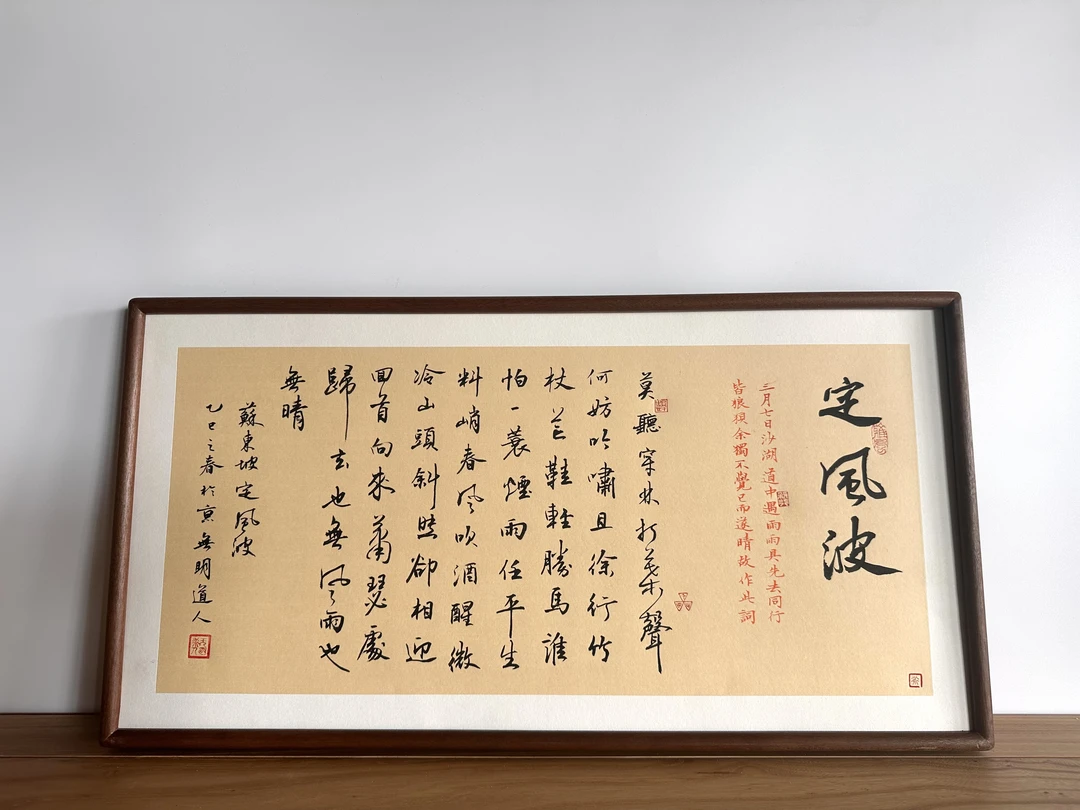 定風波
三月七日沙湖道中遇雨雨具先去同行
皆狼狽余獨不覺已而遂晴故作此詞
莫聽穿林打葉聲
何妨吟嘯且徐行竹
杖芒鞋輕勝馬誰
怕一蓑煙雨任平生
料峭春風吹酒醒微
冷山頭斜照卻相迎
回首向來蕭瑟處
歸去也無風雨也
無晴
蘇東坡定風波
乙巳之春於京無明道人